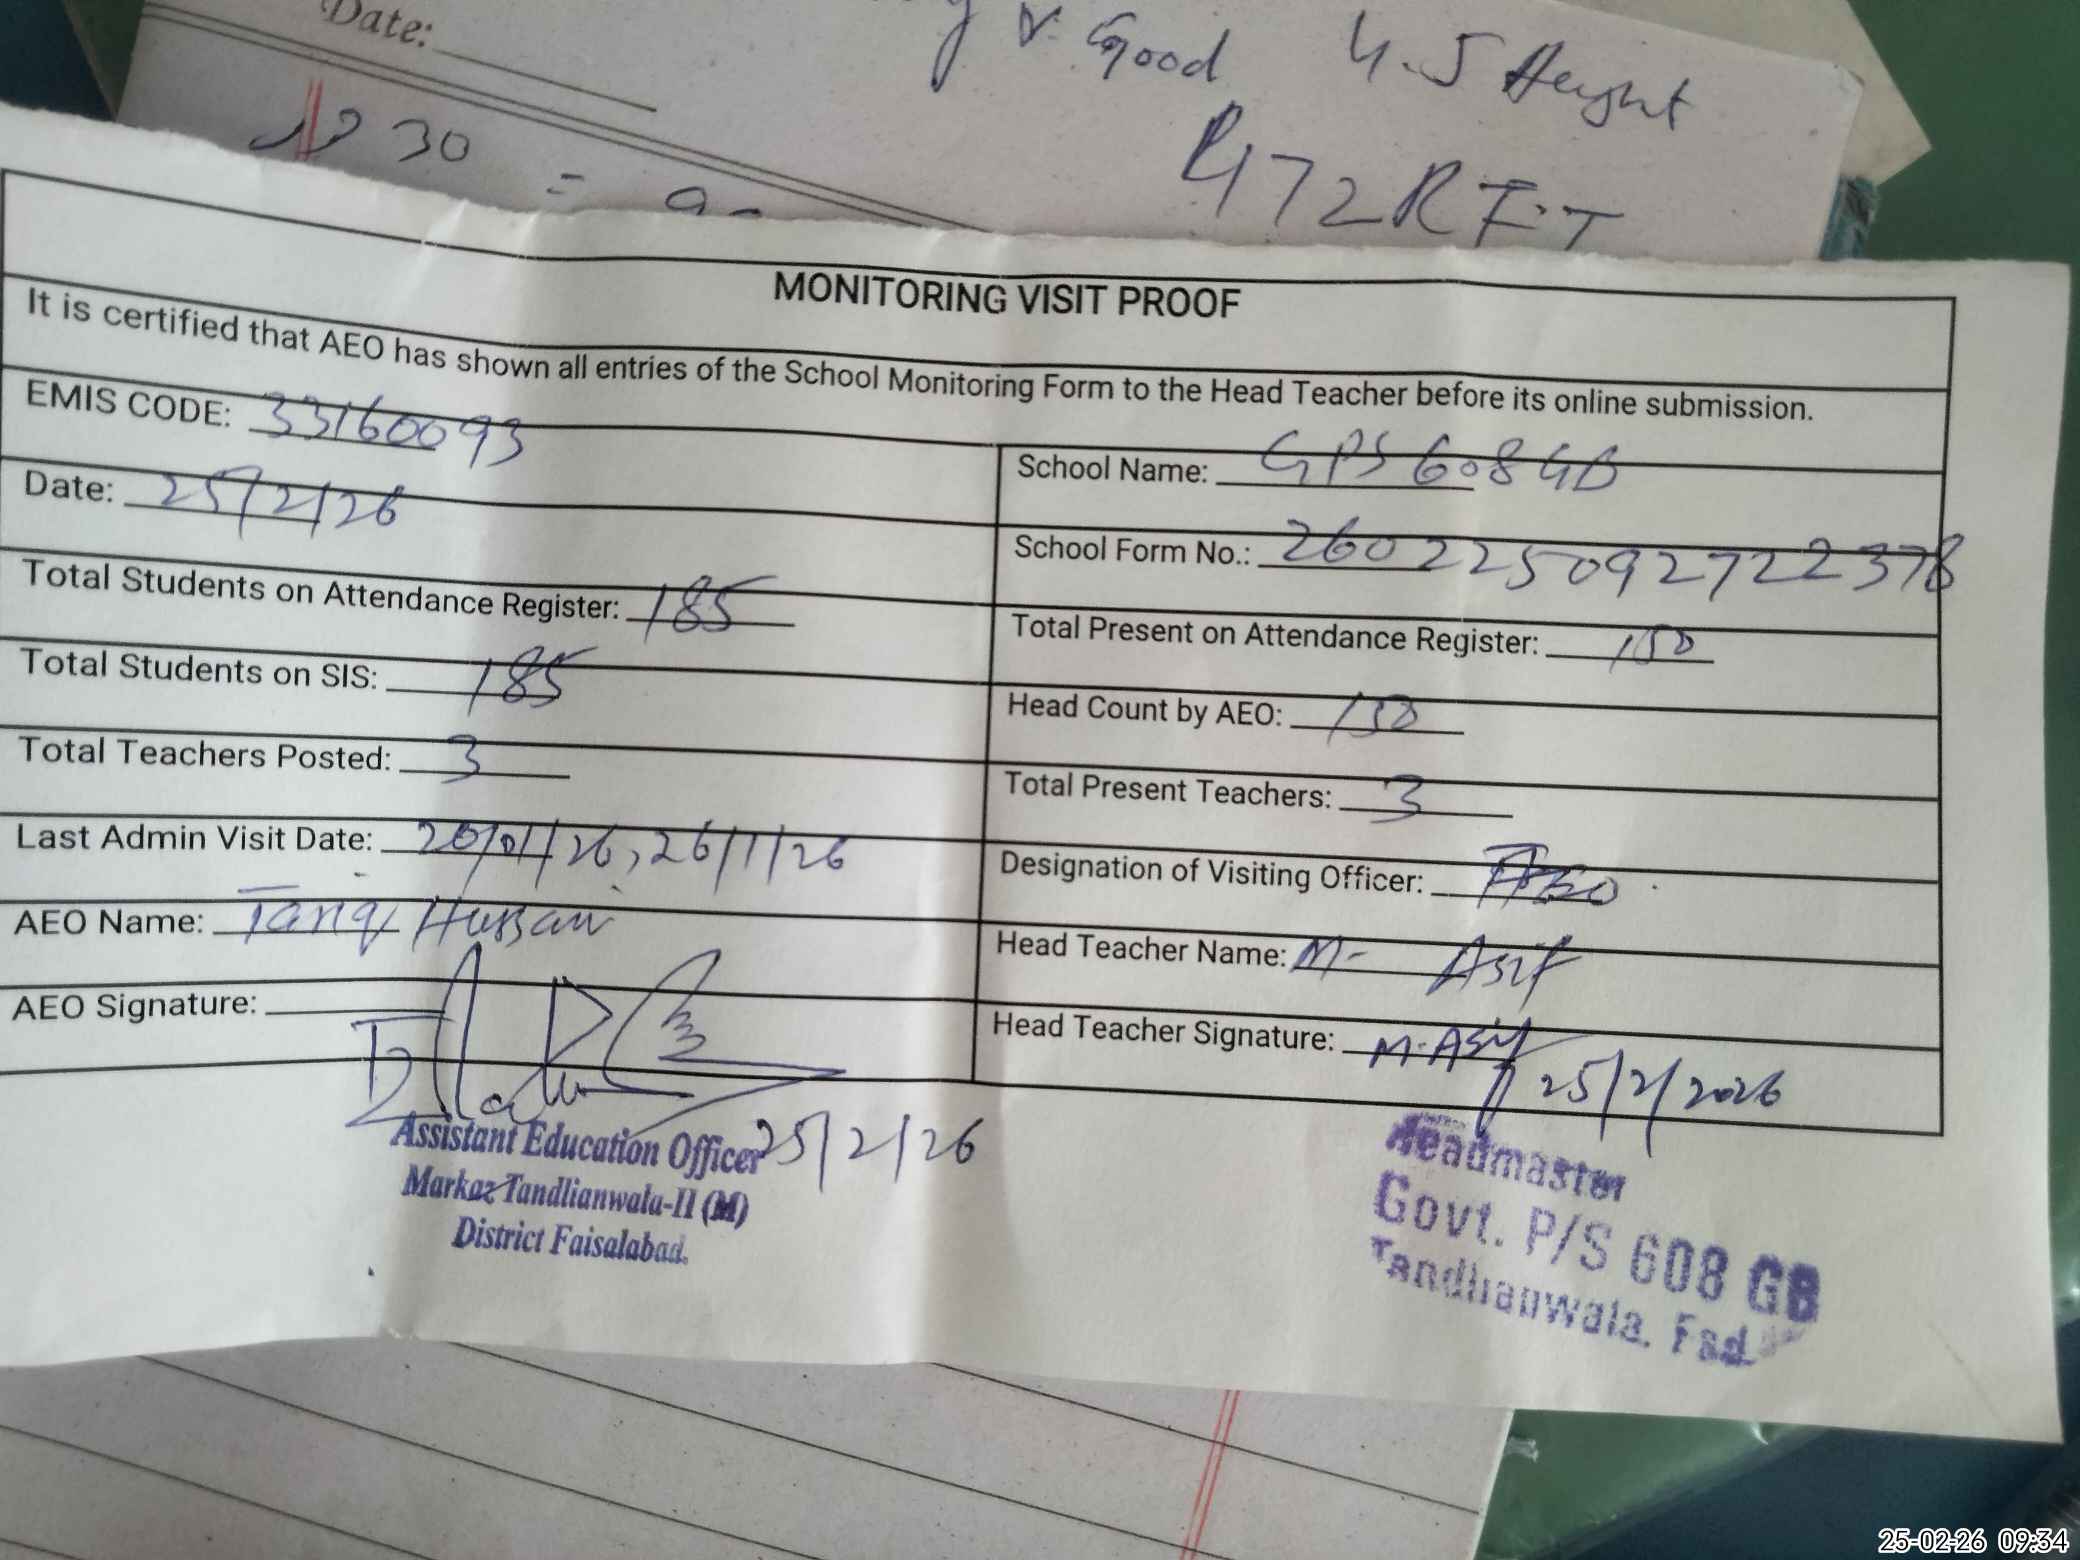 Date:
& Good 4.5 Height
30
472 RFT
=
MONITORING VISIT PROOF
It is certified that AEO has shown all entries of the School Monitoring Form to the Head Teacher before its online submission.
EMIS CODE: 33160093
School Name: GPS 608 GB
Date: 25/2/26
School Form No.: 260225092722378
Total Students on Attendance Register: 185
Total Present on Attendance Register: 150
Total Students on SIS: 185
Head Count by AEO: 150
Total Teachers Posted: 3
Total Present Teachers: 3
Last Admin Visit Date: 20/01/26, 26/1/26
Designation of Visiting Officer: AEO
AEO Name: Tariq Hussain
Head Teacher Name: M- Asif
AEO Signature:
Head Teacher Signature: M. Asif 25/2/2026
25/2/26
Assistant Education Officer
Markaz Tandlianwala-II (M)
District Faisalabad.
Headmaster
Govt. P/S 608 GB
Tandlianwala. Fsd.
25-02-26 09:34